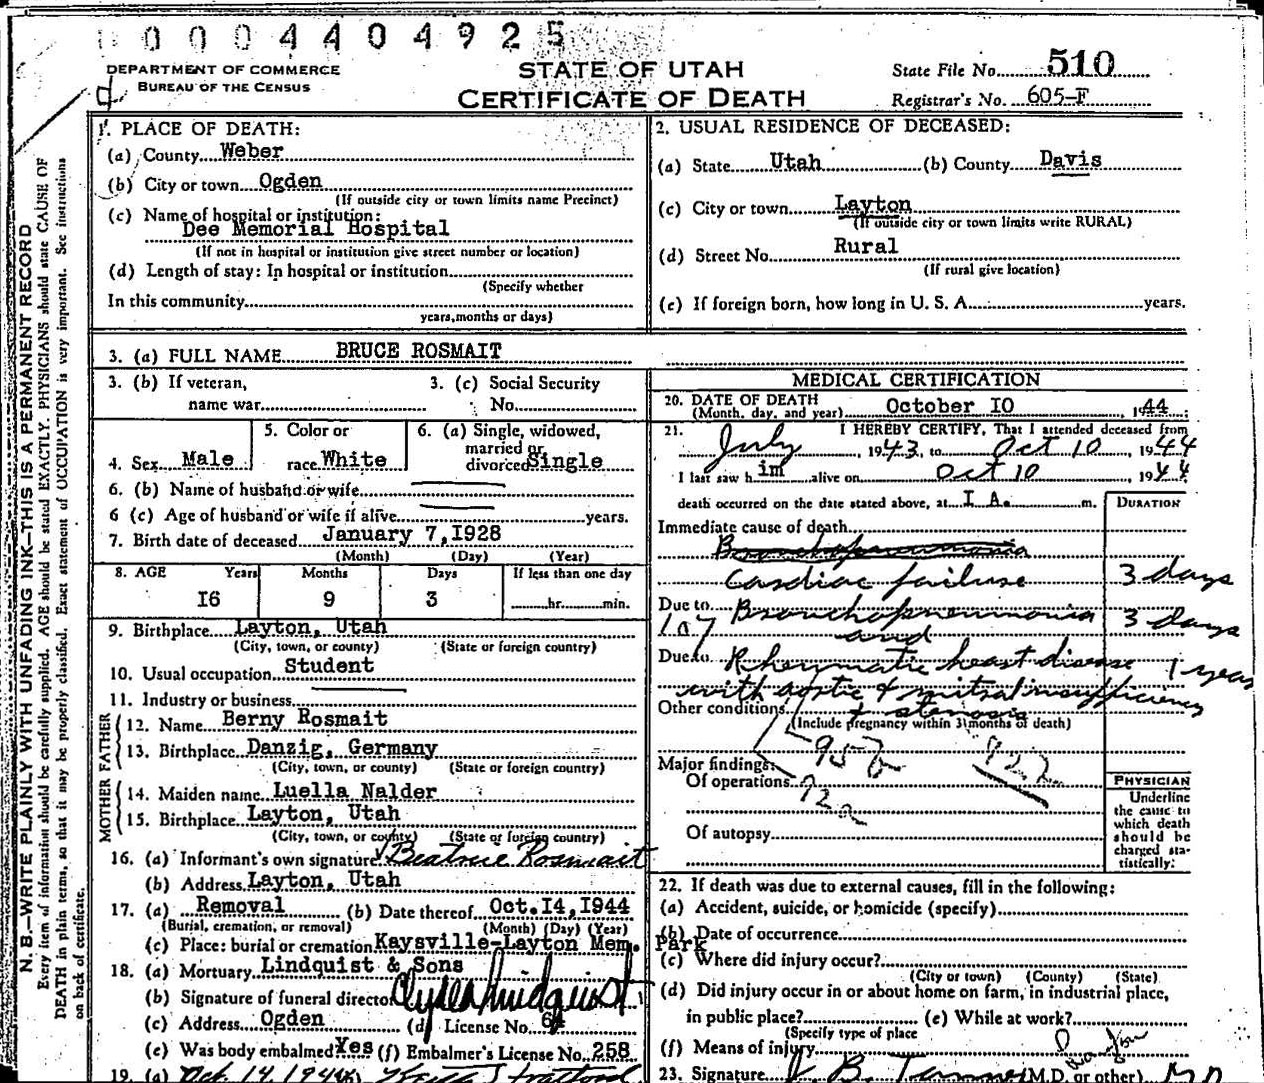 0004404925
DEPARTMENT OF COMMERCE
BUREAU OF THE CENSUS
STATE OF UTAH
CERTIFICATE OF DEATH
State File No. 510
Registrar's No. 605-F
N. B.—WRITE PLAINLY WITH UNFADING INK—THIS IS A PERMANENT RECORD
Every item of information should be carefully supplied. AGE should be stated EXACTLY. PHYSICIANS should state CAUSE OF
DEATH in plain terms, so that it may be properly classified. Exact statement of OCCUPATION is very important. See instructions
on back of certificate.
1. PLACE OF DEATH:
(a) County Weber
(b) City or town Ogden
(If outside city or town limits name Precinct)
(c) Name of hospital or institution:
Dee Memorial Hospital
(If not in hospital or institution give street number or location)
(d) Length of stay: In hospital or institution
(Specify whether
In this community
years, months or days)
2. USUAL RESIDENCE OF DECEASED:
(a) State Utah (b) County Davis
(c) City or town Layton
(If outside city or town limits write RURAL)
(d) Street No. Rural
(If rural give location)
(e) If foreign born, how long in U. S. A. years.
3. (a) FULL NAME BRUCE ROSMAIT
3. (b) If veteran, name war
3. (c) Social Security No.
4. Sex Male
5. Color or race White
6. (a) Single, widowed, married or divorced Single
6. (b) Name of husband or wife
6 (c) Age of husband or wife if alive years.
7. Birth date of deceased January 7, I928
(Month) (Day) (Year)
8. AGE Years Months Days If less than one day
I6 9 3 hr. min.
9. Birthplace Layton, Utah
(City, town, or county) (State or foreign country)
10. Usual occupation Student
11. Industry or business
FATHER
12. Name Berny Rosmait
13. Birthplace Danzig, Germany
(City, town, or county) (State or foreign country)
MOTHER
14. Maiden name Luella Nalder
15. Birthplace Layton, Utah
(City, town, or county) (State or foreign country)
16. (a) Informant's own signature Beatrice Rosmait
(b) Address Layton, Utah
17. (a) Removal (b) Date thereof Oct. I4, I944
(Burial, cremation, or removal) (Month) (Day) (Year)
(c) Place: burial or cremation Kaysville-Layton Mem. Park
18. (a) Mortuary Lindquist & Sons
(b) Signature of funeral director Clyde Lindquist
(c) Address Ogden (d) License No. 64
(e) Was body embalmed Yes (f) Embalmer's License No. 258
19. (a) Oct. 14, 1944
MEDICAL CERTIFICATION
20. DATE OF DEATH
(Month, day, and year) October IO, 1944
21. I HEREBY CERTIFY, That I attended deceased from
July, 1943, to Oct 10, 1944
I last saw him alive on Oct 10 1944
death occurred on the date stated above, at I A. m.
DURATION
Immediate cause of death
Bronchopneumonia
Cardiac failure 3 days
Due to Bronchopneumonia 3 days
107 and
Due to Rheumatic heart disease 1 year
with aortic & mitral insufficiency
Other conditions & stenosis
(Include pregnancy within 3 months of death)
95b 922
Major findings:
Of operations
92a
Of autopsy
PHYSICIAN
Underline
the cause to
which death
should be
charged sta-
tistically:
22. If death was due to external causes, fill in the following:
(a) Accident, suicide, or homicide (specify)
(b) Date of occurrence
(c) Where did injury occur?
(City or town) (County) (State)
(d) Did injury occur in or about home on farm, in industrial place,
in public place? (e) While at work?
(Specify type of place
(f) Means of injury
23. Signature (M.D. or other) M D